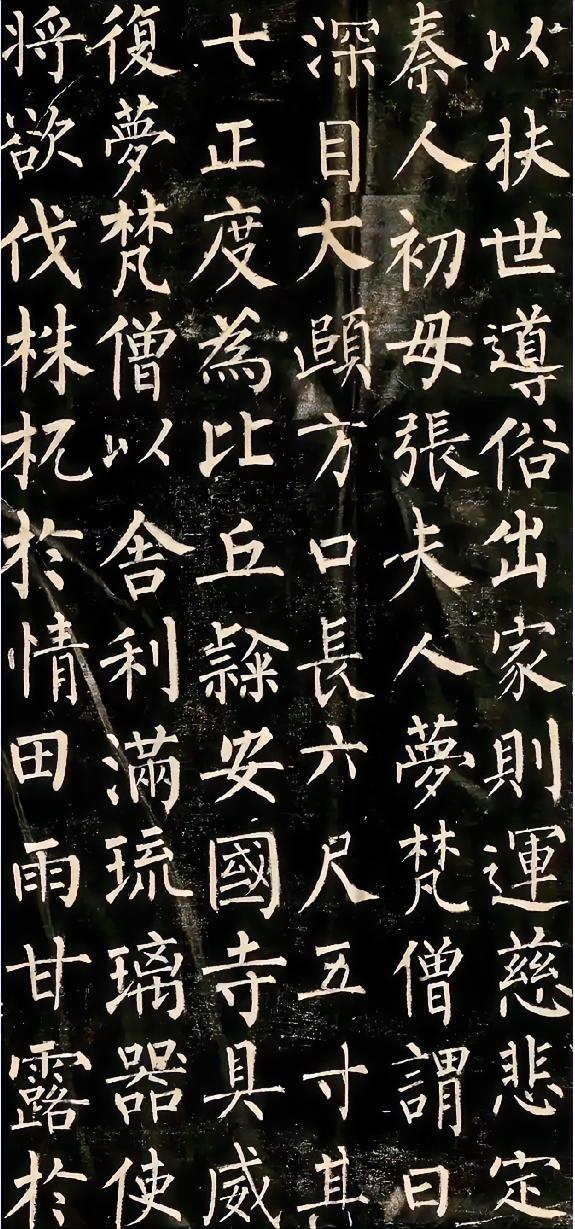 以扶世導俗出家則運慈悲定
秦人初母張夫人夢梵僧謂曰
深目大頤方口長六尺五寸其
七正度為比丘隸安國寺具威
復夢梵僧以舍利滿琉璃器使
將欲伐株杌於情田雨甘露於